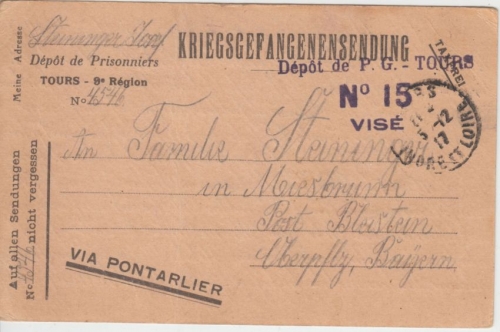 Meine Adresse
Steininger Josef
Dépôt de Prisonniers
TOURS - 9e Région
No 4546
KRIEGSGEFANGENENSENDUNG
TAXFREI
Dépôt de P. G. - TOURS
No 15
VISÉ
TOURS
5-12
17
INDRE ET LOIRE
An Familie Steininger
in
Post
Oberpflz, Bayern
Auf allen Sendungen
No 4546 nicht vergessen
VIA PONTARLIER